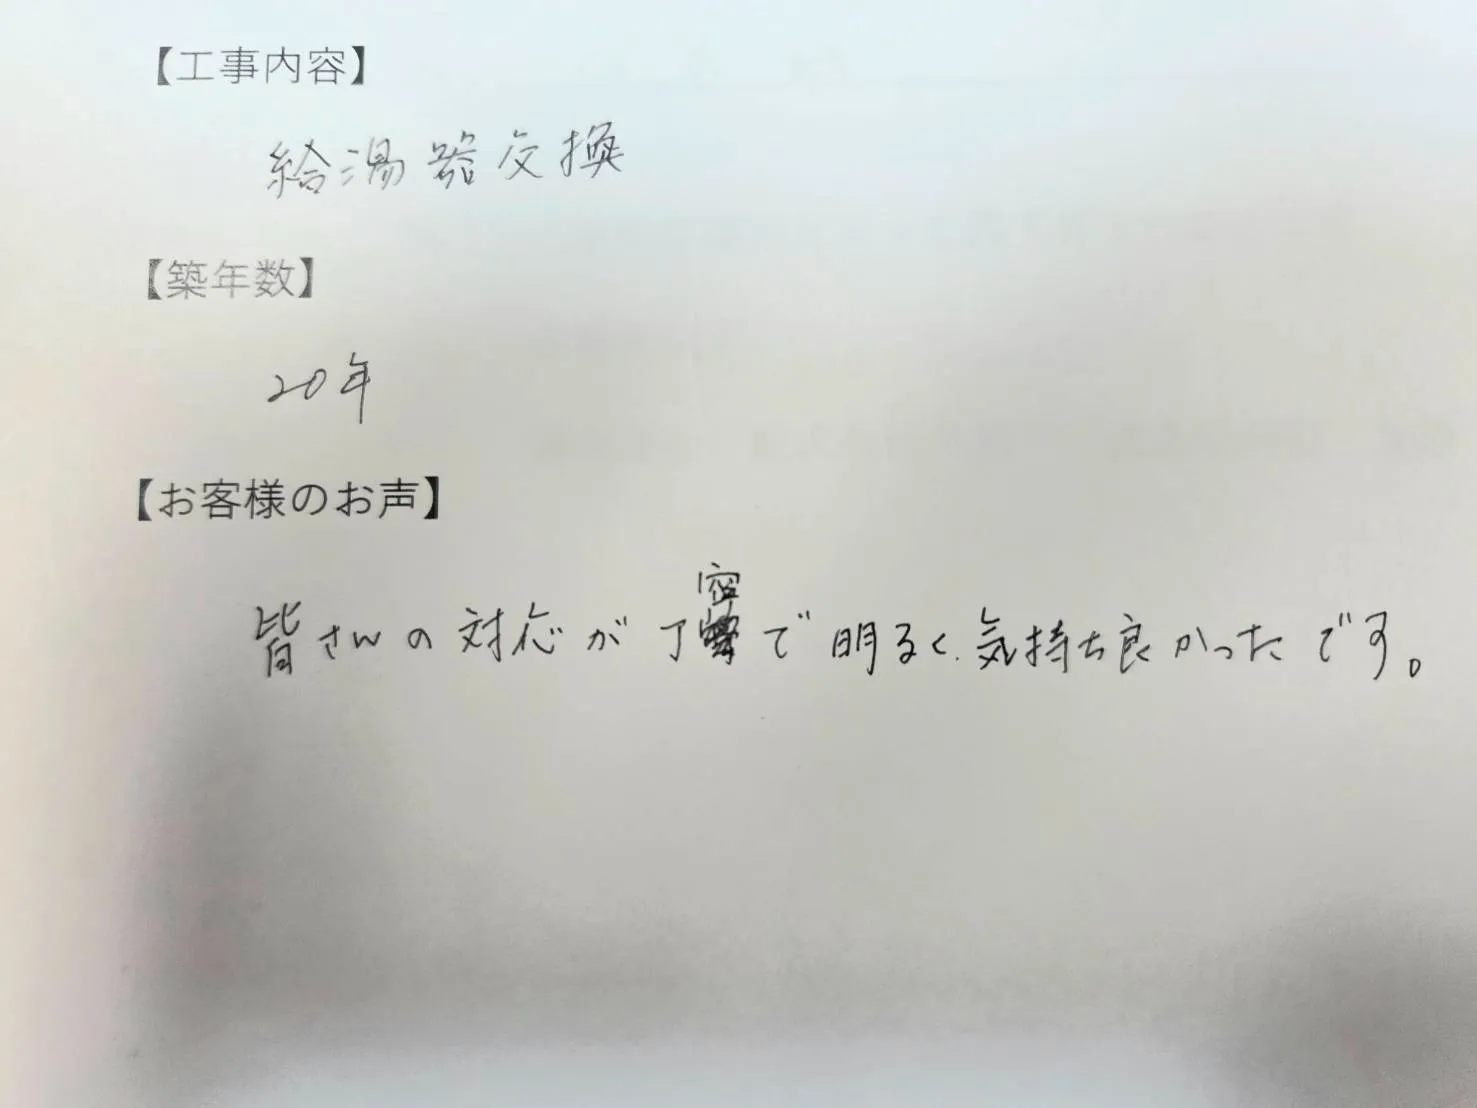 【工事内容】
給湯器交換
【築年数】
20年
【お客様のお声】
皆さんの対応が丁寧で明るく、気持ち良かったです。